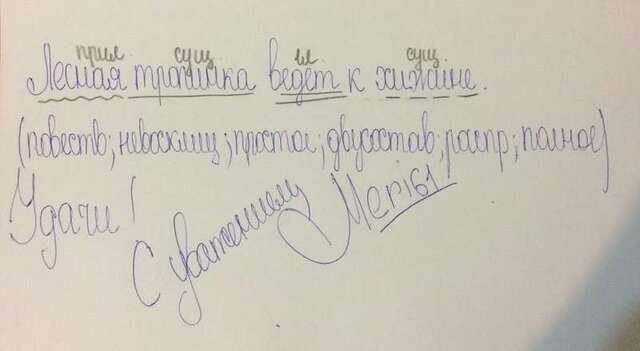 прил. сущ. гл. сущ.
Лесная тропинка ведёт к хижине.
(повеств; невосклиц; простое; двусостав; распр; полное)
Удачи!
С уважением Meri61